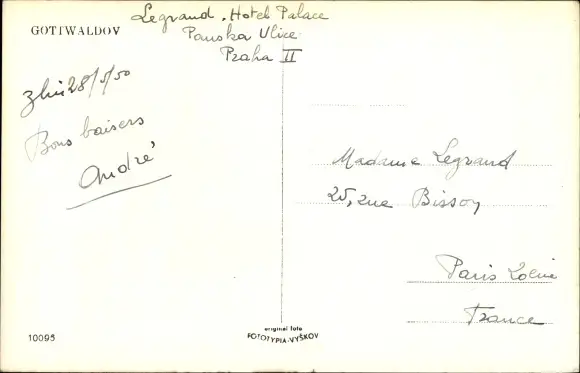 GOTTWALDOV
Legrand. Hotel Palace
Panska Ulice
Praha II
Zlin 28/5/50
Bons baisers
André
Madame Legrand
25, rue Bissoy
Paris 20ème
France
10095
original foto
FOTOTYPIA-VYŠKOV